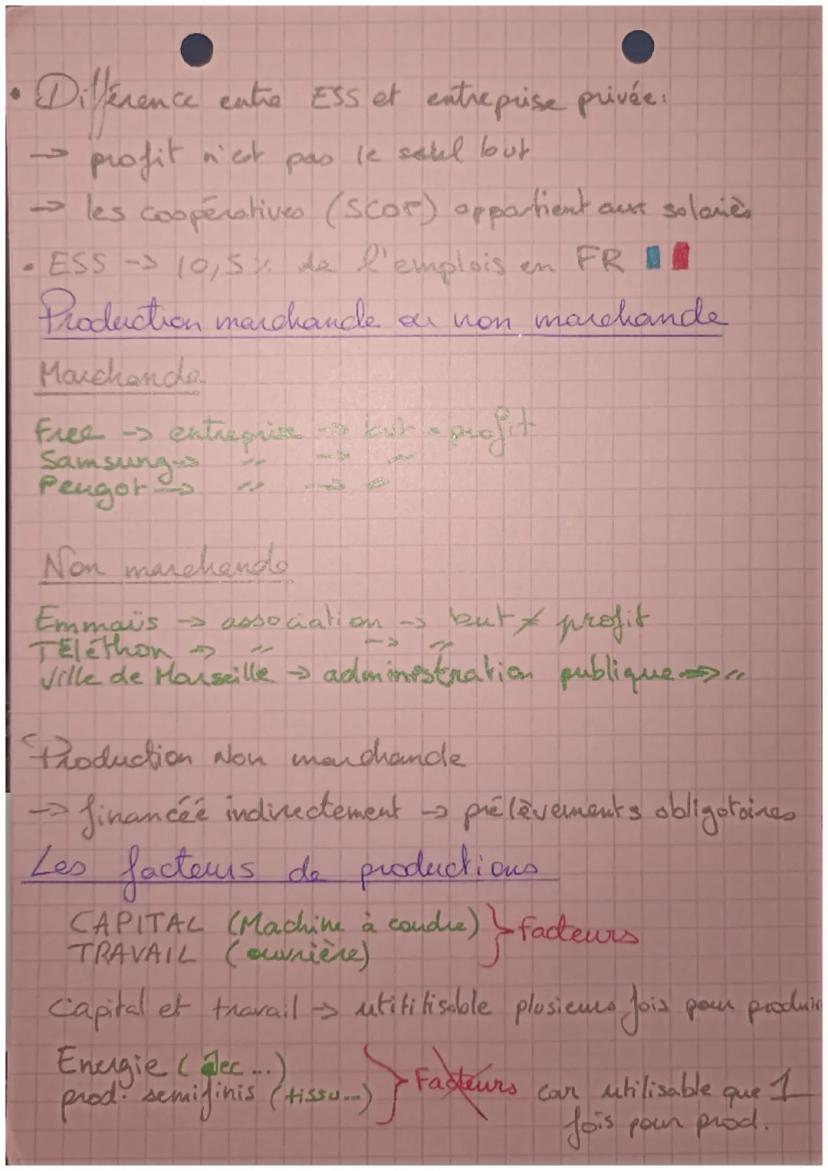 • Différence entre ESS et entreprise privée:
→ profit n'est pas le seul but
→ les coopératives (SCOP) appartient aux salariés
• ESS → 10,5% de l'emplois en FR
Production marchande ou non marchande
Marchande
Free → entreprise → but = profit
Samsung → " → "
Peugot → " → "
Non marchande
Emmaüs → association → but ≠ profit
TEléthon → " → "
Ville de Marseille → administration publique → "
Production Non marchande
→ financéé indirectement → prélèvements obligatoires
Les facteurs de productions
CAPITAL (Machine à coudre) } facteurs
TRAVAIL (ouvrière)
Capital et travail → utitilisable plusieurs fois pour produire
Energie (élec ...) } Facteurs car utilisable que 1
prod. semifinis (tissu...) fois pour prod.